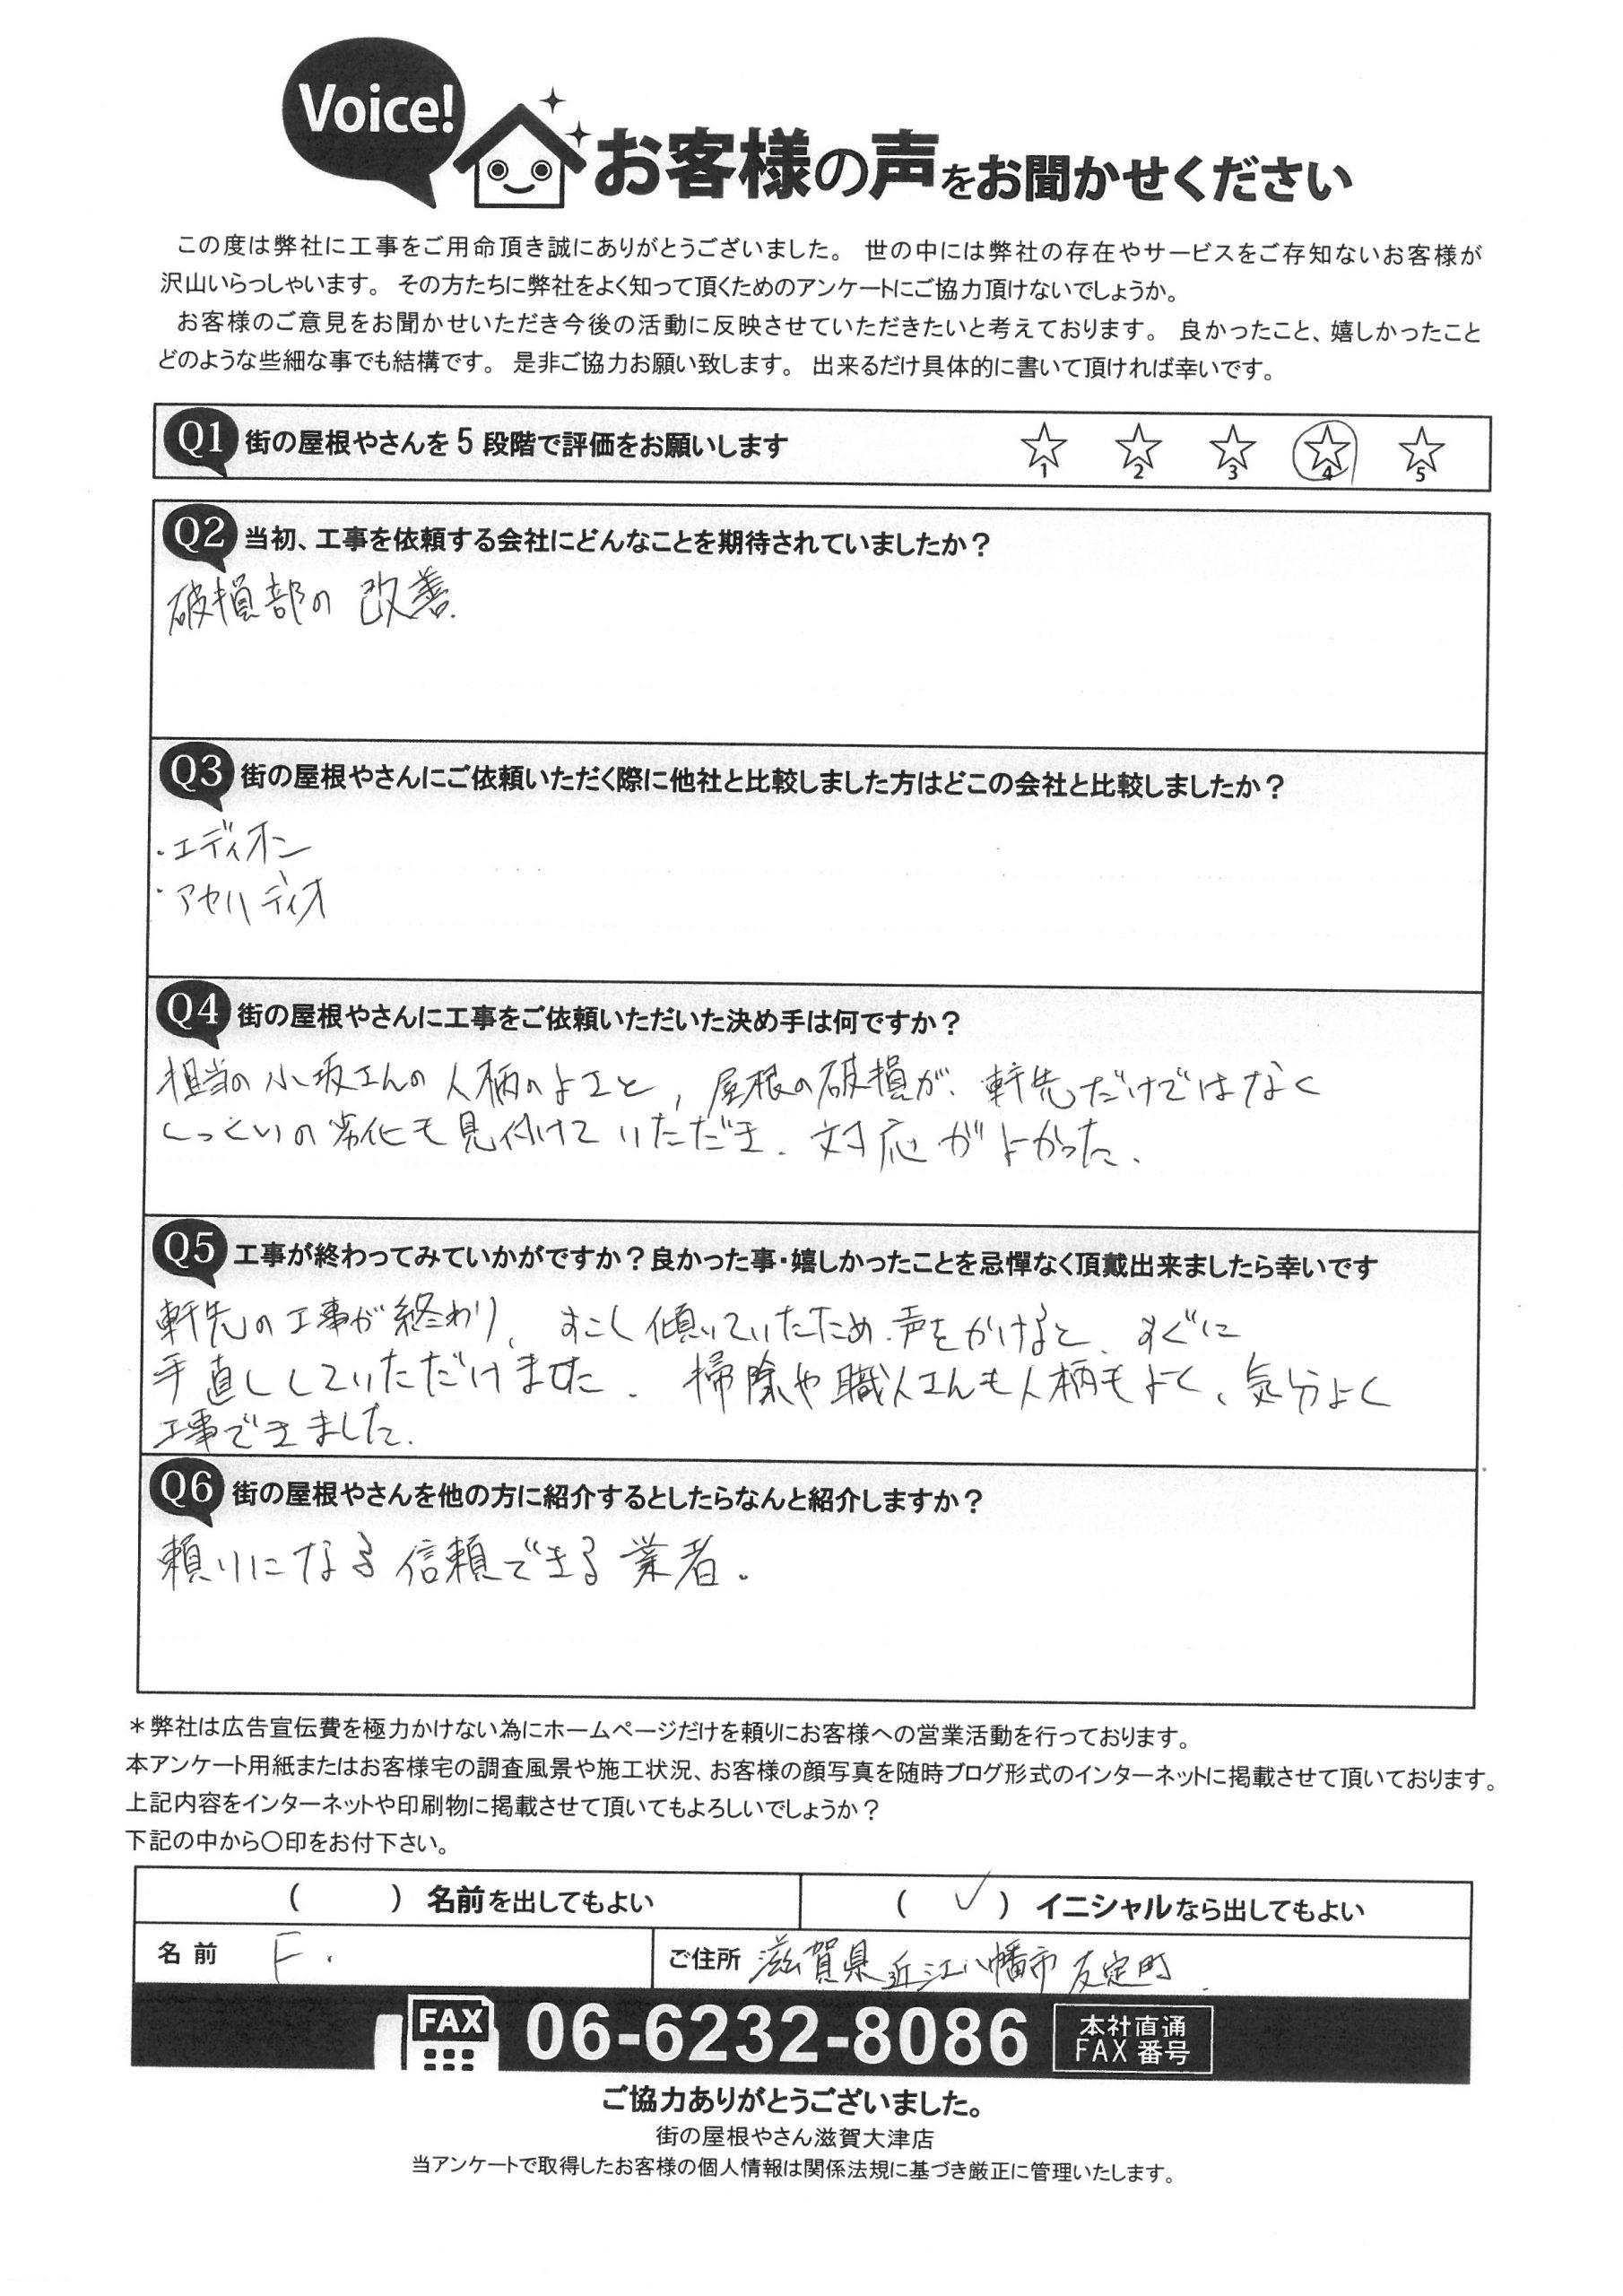 Voice!
お客様の声をお聞かせください
この度は弊社に工事をご用命頂き誠にありがとうございました。 世の中には弊社の存在やサービスをご存知ないお客様が
沢山いらっしゃいます。 その方たちに弊社をよく知って頂くためのアンケートにご協力頂けないでしょうか。
お客様のご意見をお聞かせいただき今後の活動に反映させていただきたいと考えております。 良かったこと、嬉しかったこと
どのような些細な事でも結構です。 是非ご協力お願い致します。 出来るだけ具体的に書いて頂ければ幸いです。
Q1 街の屋根やさんを5段階で評価をお願いします ☆1 ☆2 ☆3 ☆4 ☆5
Q2 当初、工事を依頼する会社にどんなことを期待されていましたか？
破損部の 改善.
Q3 街の屋根やさんにご依頼いただく際に他社と比較しました方はどこの会社と比較しましたか？
・エディオン
・アヤハディオ
Q4 街の屋根やさんに工事をご依頼いただいた決め手は何ですか？
担当の小坂さんの人柄のよさと、屋根の破損が、軒先だけではなく
しっくいの劣化も見付けていただき、対応がよかった、
Q5 工事が終わってみていかがですか？良かった事・嬉しかったことを忌憚なく頂戴出来ましたら幸いです
軒先の工事が終わり、すこし傾いていたため、声をかけると、すぐに
手直ししていただけました. 掃除や職人さんも人柄もよく、気分よく
工事できました.
Q6 街の屋根やさんを他の方に紹介するとしたらなんと紹介しますか？
頼りになる信頼できる業者。
＊弊社は広告宣伝費を極力かけない為にホームページだけを頼りにお客様への営業活動を行っております。
本アンケート用紙またはお客様宅の調査風景や施工状況、お客様の顔写真を随時ブログ形式のインターネットに掲載させて頂いております。
上記内容をインターネットや印刷物に掲載させて頂いてもよろしいでしょうか？
下記の中から〇印をお付下さい。
（　　）名前を出してもよい （ ✓ ）イニシャルなら出してもよい
名前 F. ご住所 滋賀県近江八幡市友定町.
FAX 06-6232-8086 本社直通
FAX番号
ご協力ありがとうございました。
街の屋根やさん滋賀大津店
当アンケートで取得したお客様の個人情報は関係法規に基づき厳正に管理いたします。